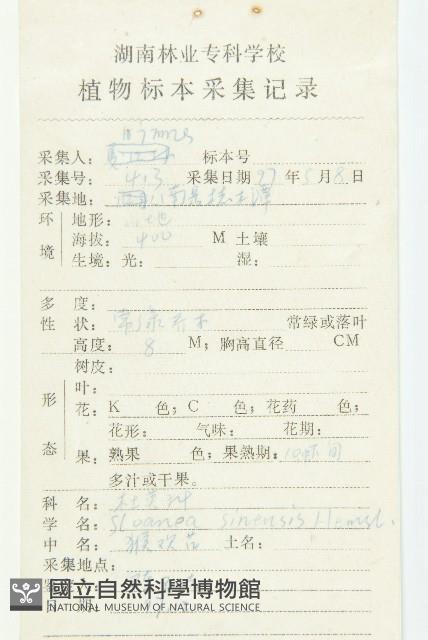 湖南林业专科学校
植物标本采集记录
采集人: 标本号
采集号: 413 采集日期 97 年 5 月 8 日
采集地:
环境 地形: 地
海拔: 400 M 土壤
生境: 光: 湿:
多度:
性状: 常绿乔木 常绿或落叶
高度: 8 M; 胸高直径 CM
树皮:
形态 叶:
花: K 色; C 色; 花药 色;
花形: 气味: 花期:
果: 熟果 色; 果熟期:
多汁或干果。
科名: 杜英科
学名: Sloanea sinensis Hemsl.
中名: 猴欢喜 土名:
采集地点:
國立自然科學博物館
NATIONAL MUSEUM OF NATURAL SCIENCE